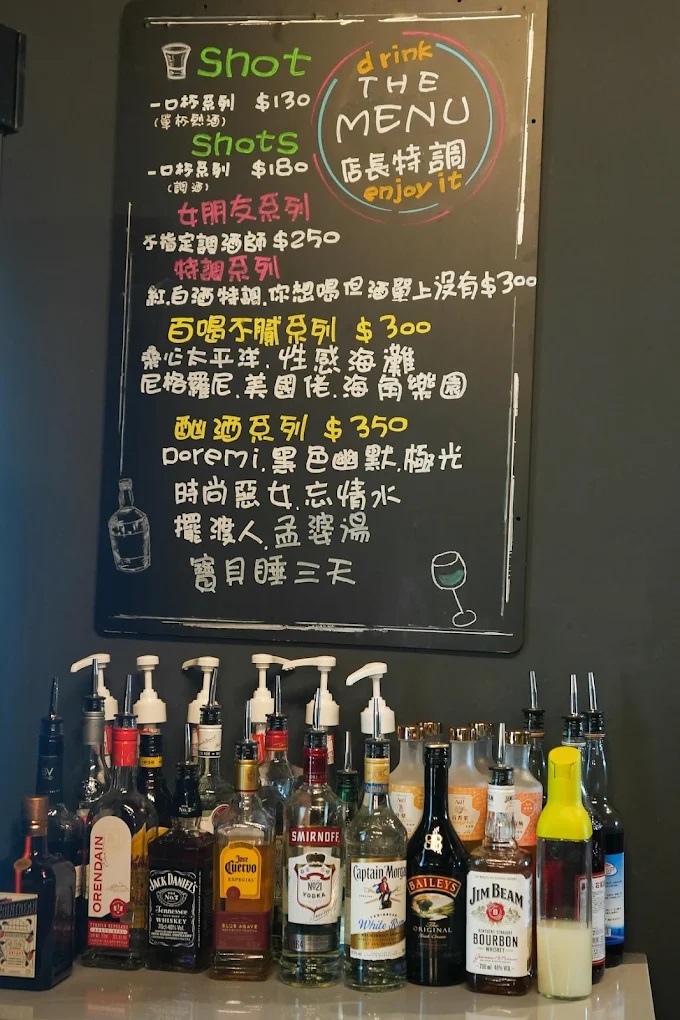 shot
一口杯系列 $130
(單杯烈酒)
shots
一口杯系列 $180
(調酒)
drink
THE
MENU
店長特調
enjoy it
女朋友系列
不指定調酒師 $250
特調系列
紅.白酒特調.你想喝但酒單上沒有$300
百喝不膩系列 $300
桑心太平洋.性感海灘
尼格羅尼.美國佬.海角樂園
酗酒系列 $350
Doremi.黑色幽默.極光
時尚惡女.忘情水
擺渡人.孟婆湯
寶貝睡三天
ORENDAIN
JACK DANIEL'S
Tennessee
WHISKEY
Jose
Cuervo
ESPECIAL
BLUE AGAVE
SMIRNOFF
No21
VODKA
Captain Morgan
White Rum
BAILEYS
The
ORIGINAL
JIM BEAM
KENTUCKY STRAIGHT
BOURBON
WHISKEY